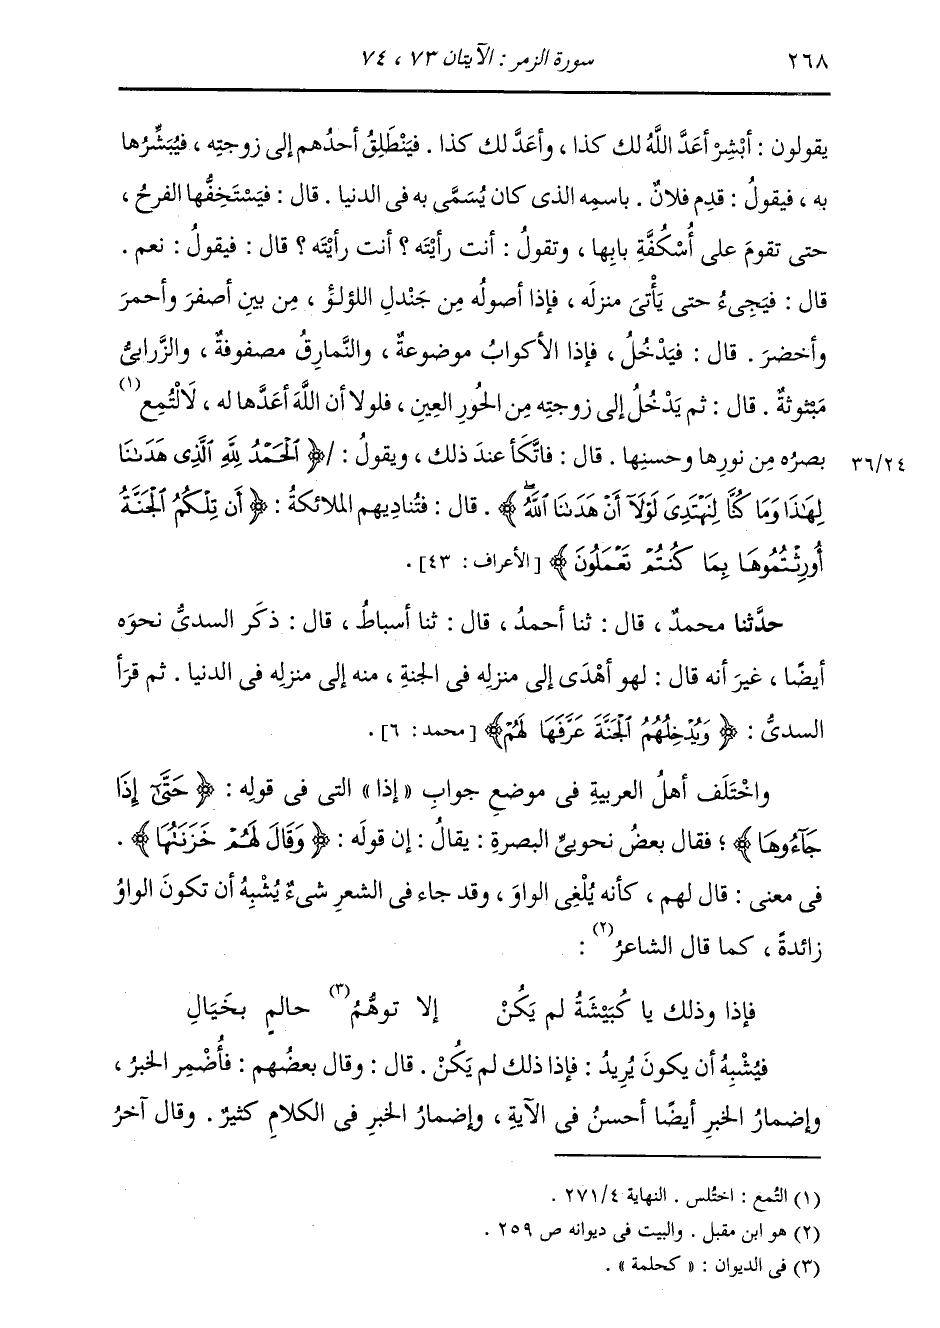 ٢٦٨
سورة الزمر : الآيتان ٧٣ ، ٧٤
يقولون : أَبْشِرْ أعَدَّ اللَّهُ لك كذا ، وأعَدَّ لك كذا . فيَنْطَلِقُ أحدُهم إلى زوجتِه ، فيُبَشِّرُها
به ، فيقولُ : قدِم فلانٌ . باسمِه الذى كان يُسَمَّى به فى الدنيا . قال : فيَسْتَخِفُّها الفرحُ ،
حتى تقومَ على أُسْكُفَّةِ بابِها ، وتقولُ : أنت رأيْتَه ؟ أنت رأيْتَه ؟ قال : فيقولُ : نعم .
قال : فيَجِىءُ حتى يَأْتىَ منزلَه ، فإذا أصولُه مِن جَنْدلِ اللؤلؤِ ، مِن بينِ أصفرَ وأحمرَ
وأخضرَ . قال : فيَدْخُلُ ، فإذا الأكوابُ موضوعةٌ ، والنَّمارقُ مصفوفةٌ ، والزَّرابىُّ
مَبْثوثةٌ . قال : ثم يَدْخُلُ إلى زوجتِه مِن الحُورِ العِينِ ، فلولا أن اللَّهَ أعَدَّها له ، لَالْتُمِع (١)
بصرُه مِن نورِها وحسنِها . قال : فاتَّكَأ عندَ ذلك ، ويقولُ : /﴿ ٱلْحَمْدُ لِلَّهِ ٱلَّذِى هَدَىٰنَا
٣٦/٢٤
لِهَٰذَا وَمَا كُنَّا لِنَهْتَدِىَ لَوْلَآ أَنْ هَدَىٰنَا ٱللَّهُۖ ﴾ . قال : فتُنادِيهم الملائكةُ : ﴿ أَن تِلْكُمُ ٱلْجَنَّةُ
أُورِثْتُمُوهَا بِمَا كُنتُمْ تَعْمَلُونَ ﴾ [الأعراف : ٤٣] .
حدَّثنا محمدٌ ، قال : ثنا أحمدُ ، قال : ثنا أسباطُ ، قال : ذكَر السدىُّ نحوَه
أيضًا ، غيرَ أنه قال : لهو أهْدَى إلى منزلِه فى الجنةِ ، منه إلى منزلِه فى الدنيا . ثم قرَأ
السدىُّ : ﴿ وَيُدْخِلُهُمُ ٱلْجَنَّةَ عَرَّفَهَا لَهُمْ ﴾ [محمد : ٦] .
واخْتَلَف أهلُ العربيةِ فى موضعِ جوابِ « إذا » التى فى قولِه : ﴿ حَتَّىٰٓ إِذَا
جَآءُوهَا ﴾ ؛ فقال بعضُ نحويِّى البصرةِ : يقالُ : إن قولَه : ﴿ وَقَالَ لَهُمْ خَزَنَتُهَا ﴾ .
فى معنى : قال لهم ، كأنه يُلْغِى الواوَ ، وقد جاء فى الشعرِ شىءٌ يُشْبِهُ أن تكونَ الواوُ
زائدةً ، كما قال الشاعرُ (٢) :
فإذا وذلك يا كُبَيْشَةُ لم يَكُنْ إلا توهُّمُ (٣) حالمٍ بخَيَالِ
فيُشْبِهُ أن يكونَ يُرِيدُ : فإذا ذلك لم يَكُنْ . قال : وقال بعضُهم : فأُضْمِر الخبرُ ،
وإضمارُ الخبرِ أيضًا أحسنُ فى الآيةِ ، وإضمارُ الخبرِ فى الكلامِ كثيرٌ . وقال آخرُ
(١) التُمع : اختُلس . النهاية ٢٧١/٤ .
(٢) هو ابن مقبل . والبيت فى ديوانه ص ٢٥٩ .
(٣) فى الديوان : « كحلمة » .